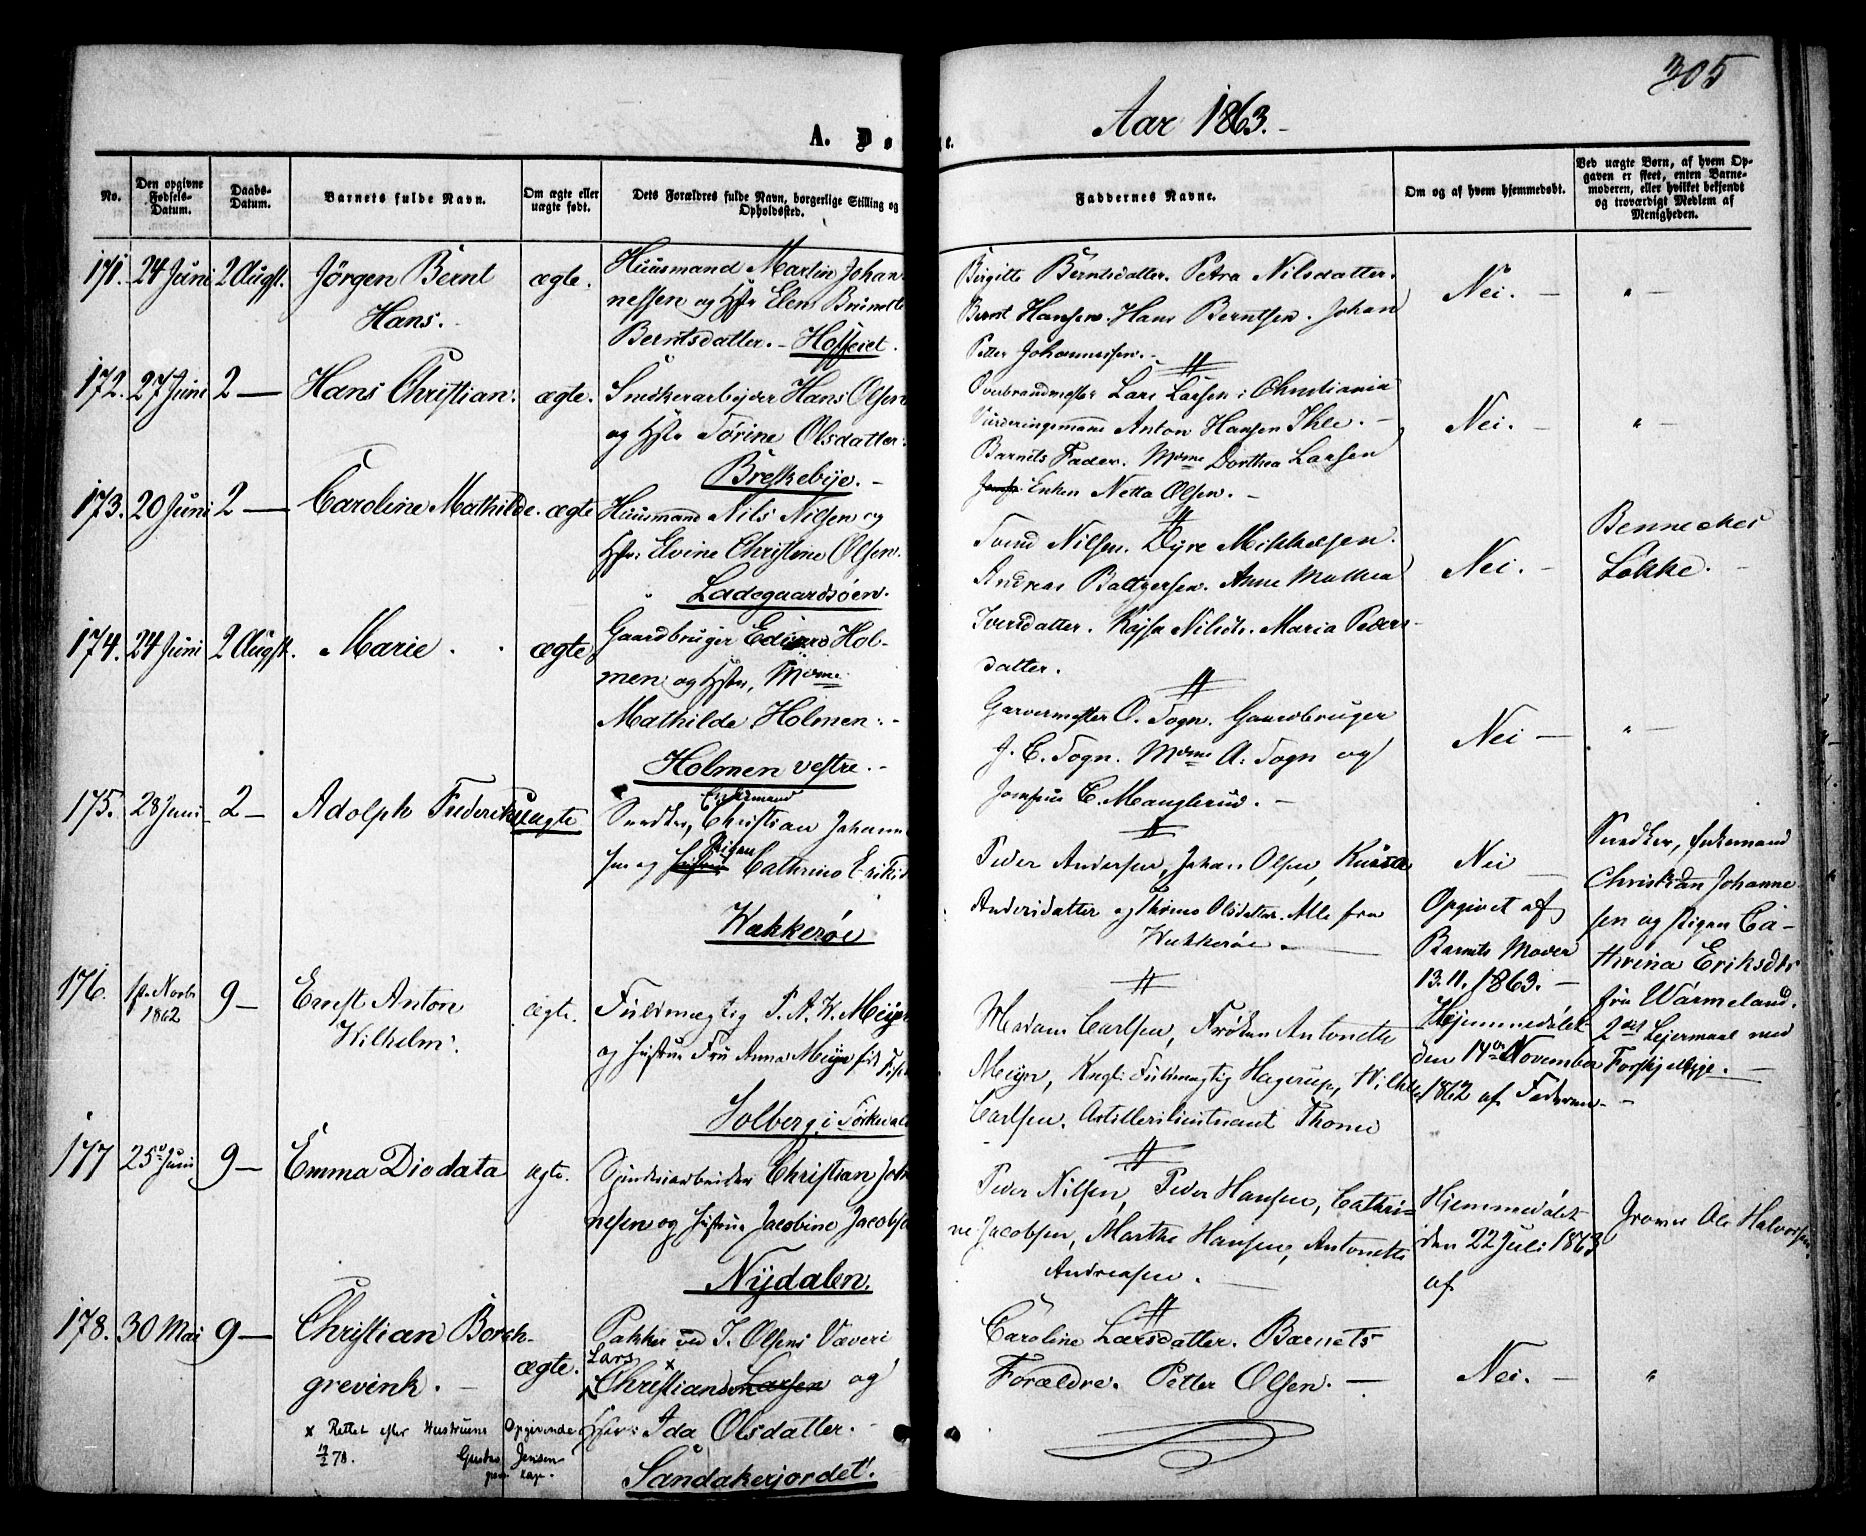 305
Aar 1863.
A. Dø
te.
No.
Den opgivne Fødsels-Datum.
Daabs-Datum.
Barnets fulde Navn.
Om ægte eller uægte født.
Dets Forældres fulde Navn, borgerlige Stilling og Opholdssted.
Faddernes Navne.
Om og af hvem hjemmedøbt.
Ved uægte Børn, af hvem Opgaven er skeet, enten Barnemoderen, eller hvilket bekjendt og troværdigt Medlem af Menigheden.
171. 24 Juni 2 Augst. Jörgen Bernt ægte. Huusmand Martin Johan-
Hans. nessen og Hstr Elen
Berntsdatter. - Hoffeiet.
Birgitte Berntsdatter. Petra Nilsdatter.
Bernt Hansen. Hans Berntsen. Johan
Petter Johannessen.
Nei. — " —
172. 27 Juni 2 — Hans Christian. ægte. Snedkerarbejder Hans Olsen
og Hstr Törine Olsdatter.
Breskebye. -
Overbrandmester Lars Larsen i Christiania
Vurderingsmand Anton Hansen Ihle. -
Barnets Fader. Mdme Dorthea Larsen
Enken Netta Olsen. -
Nei. — " —
173. 20 Juni 2 — Caroline Mathilde. ægte Huusmand Nils Nilsen og
Hstr. Elvine Christine Olsen.
Ladegaardsöen.
Svend Nilsen. Dyre Mikkelsen.
Andreas Baltzersen. Anne Mathea
Iversdatter. Kajsa Nilsdr. Maria Peders-
datter.
Nei. -
Benneches
Lökke. -
174. 24 Juni 2 Augst. Marie. ægte Gaardbruger Edvard Hol-
men og Hstr, Mdme
Mathilde Holmen. -
Holmen vestre. -
Garvermester O. Sogn. Gaardbruger
J. C. Sogn. Mdme A. Sogn og
Jomfrue C. Manglerud. -
Nei — " —
175. 28 Juni 2 — Adolph Frederik uægte Snedker, Enkemand Christian Johanne
sen og Pigen Cathrine Eriksd
Wækkerøe
Peder Andersen, Johan Olsen,
Andersdatter og Olsdatter. Alle fra
Wækkerøe. -
Nei
Opgivet af
Barnets Moder
13.11.1863. -
Snedker, Enkemand
Christian Johanne-
sen og Pigen Ca-
thrina Eriksdtr
fra Wärmeland.
2det Lejermaal med
Forskjellige. -
176. 1ste Novbr 1862 9 — Ernst Anton ægte. Fuldmægtig P. A. W. Meijer
Wilhelm. og Hustrue Fru Anna Meijer fød
Solberg i
Madam Carlsen, Frøken Antonette
Meijer, Kngl. Fuldmægtig Hagerup, Wilhelm
Carlsen. Artillerilieutnant Thome
Hjemmedøbt
den 14de November
1862 af Faderen. -
177 25de Juni 9 — Emma Diodata ægte. Spinderiarbeider Christian Joh
nesen og Hustrue Jacobine Jacobs
Nijdalen.
Peder Nilsen, Peder Hansen, Cathri-
ne Jacobsen, Marthe Hansen, Antonette
Andreasen. -
Hjemmedøbt
den 22 Juli 1863
af
Ole Halvorsen.
178. 30 Mai 9 — Christian Borch- ægte. Pakker ved J. Olsens Væveri
grevink. - Lars × Christiansen Larsen og
Hstr: Ida Olsdatter. -
Sandakerjordet.
× Rettet efter Hustruens Opgivende
12/2 78. Gustav Jensen
Caroline Larsdatter. Barnets
Forældre. Petter Olsen. —
Nei. — "